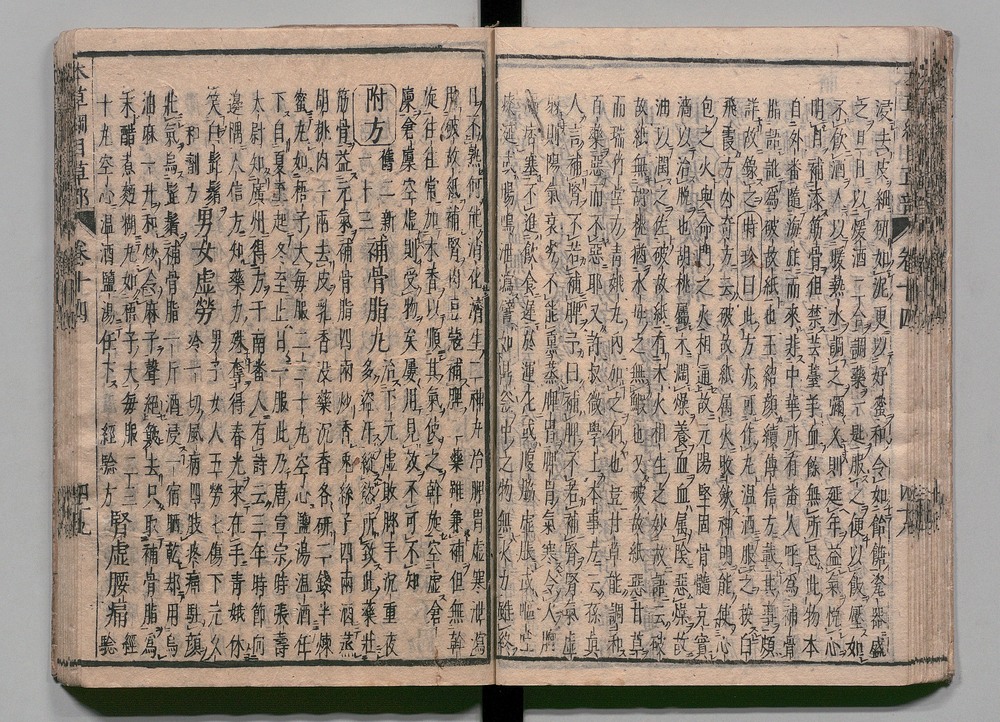 浸去皮細切如泥更以好蜜和合如飴餹瓷器盛
之旦日以煖酒二合調藥一匙服之便以飯壓如
不飲酒人以煖熱水調之彌久則延年益氣悅心
明目補添筋骨但禁芸薹羊血餘無所忌此物本
自外番隨海舶而來非中華所有番人呼爲補骨
脂語訛爲破故紙也王紹顏續傳信方載其事頗
詳故錄之時珍曰此方亦可作丸溫酒服之按白
飛霞方外奇方云破故紙屬火收斂神明能使心
包之火與命門之火相通故元陽堅固骨髓充實
濇以治脫也胡桃屬木潤燥養血血屬陰惡燥故
油以潤之佐破故紙有木火相生之妙故語云破
故紙無胡桃猶水母之無鰕也又破故紙惡甘草
而瑞竹堂方青娥丸內加之何也豈甘草能調和
百藥惡而不惡耶又許叔微學士本事方云孫眞
人言補腎不若補脾予曰補脾不若補腎腎氣虛
弱則陽氣衰劣不能熏蒸脾胃脾胃氣寒令人胸
膈痞塞不進飮食遲於運化或腹脇虛脹或嘔吐
痰涎或腸鳴泄瀉譬如鼎釜中之物無火力雖終
日不熟何能消化濟生二神丸治脾胃虛寒泄瀉
用破故紙補腎肉豆蔻補脾二藥雖兼補但無斡
旋往往常加木香以順其氣使之斡旋空虛倉
廩倉廩空虛則受物矣屢用見效不可不知
附方 舊二新一十三 補骨脂丸 治下元虛敗脚手沉重夜
多盜汗縱慾所致此藥壯
筋骨益元氣補骨脂四兩炒香兎絲子四兩酒蒸
胡桃肉一兩去皮乳香没藥沉香各研二錢半煉
蜜丸如梧子大每服二三十丸空心鹽湯溫酒任
下自夏至起冬至止日一服此乃唐宣宗時張壽
太尉知廣州得方于南番人有詩云三年時節向
邊隅人信方知藥力殊奪得春光來在手青娥休
笑白髭鬚 男女虛勞 男子女人五勞七傷下元久
冷一切風病四肢疼痛駐顏
壯氣烏髭鬚補骨脂一斤酒浸一宿晒乾却用烏
油麻一升和炒令麻子聲絕簸去只取補骨脂爲
末醋煮麪糊丸如梧子大每服二三
十丸空心溫酒鹽湯任下 經驗方 腎虛腰痛 經
驗
本草綱目草部 卷十四 四十九